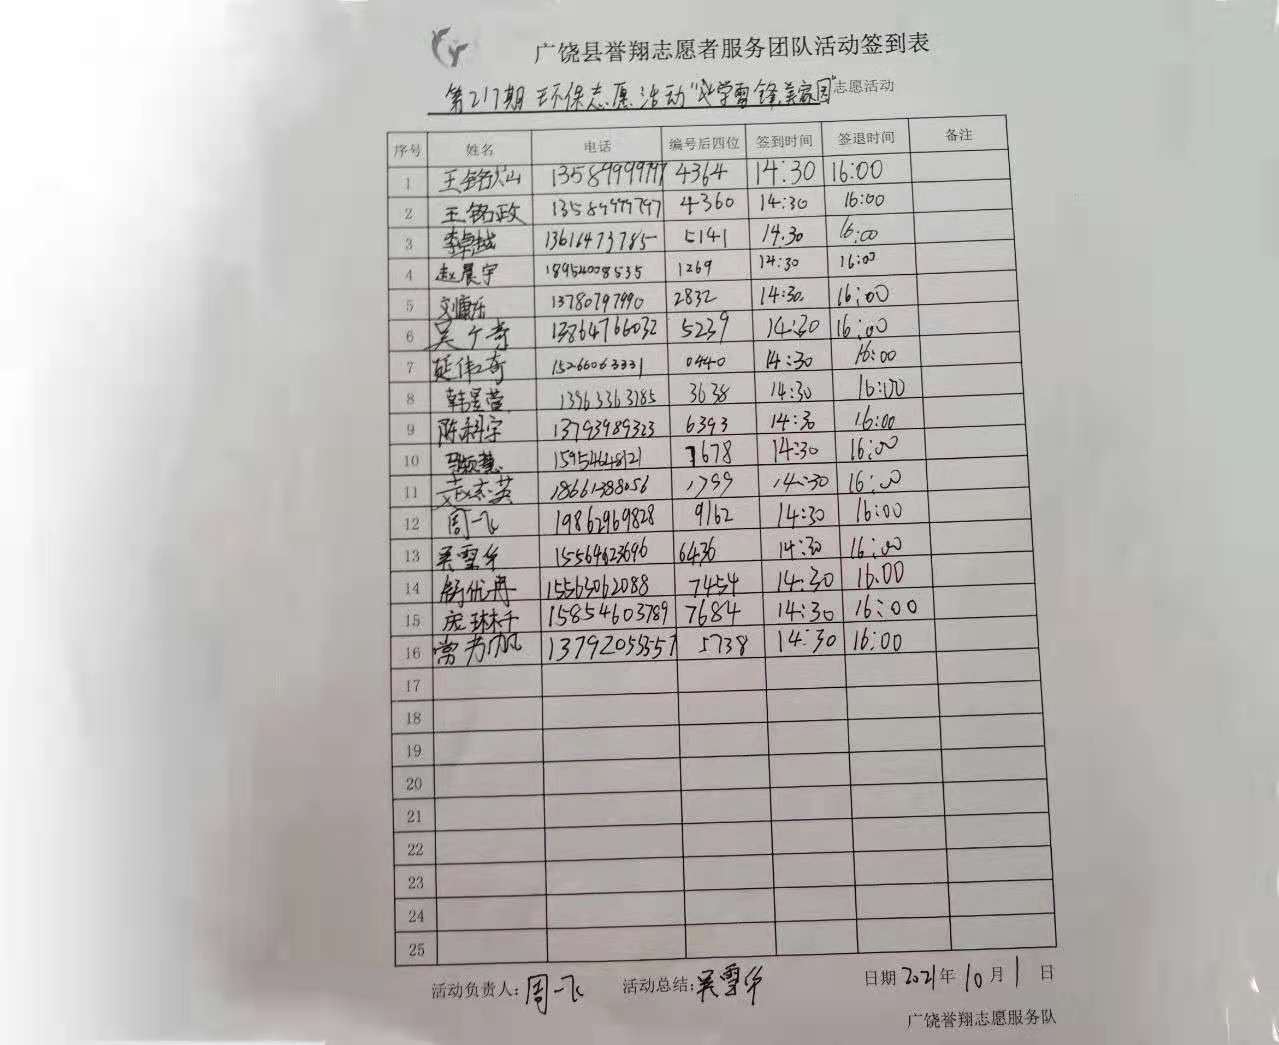 广饶县誉翔志愿者服务团队活动签到表
第217期环保志愿活动"学雷锋,美家园"志愿活动
序号 姓名 电话 编号后四位 签到时间 签退时间 备注
1 王铭 4364 14:30 16:00
2 王铭政 4360 14:30 16:00
3 李卓越 13616473785 5141 14:30 16:00
4 赵晨宇 18954008535 1269 14:30 16:00
5 13780797990 2832 14:30 16:00
6 吴 奇 13864766032 5239 14:30 16:00
7 延伟奇 15266063331 0440 14:30 16:00
8 韩昱萱 13963363785 3638 14:30 16:00
9 陈科宇 13793989323 6393 14:30 16:00
10 1678 14:30 16:00
11 18661388056 1799 14:30 16:00
12 周一飞 19862969828 9162 14:30 16:00
13 吴雪华 15564623696 6436 14:30 16:00
14 舒优冉 15563062088 7454 14:30 16:00
15 庞琳千 15854603789 7684 14:30 16:00
16 常 帆 13792055557 5738 14:30 16:00
17
18
19
20
21
22
23
24
25
活动负责人:周一飞 活动总结:吴雪华 日期2021年10月1日
广饶誉翔志愿服务队